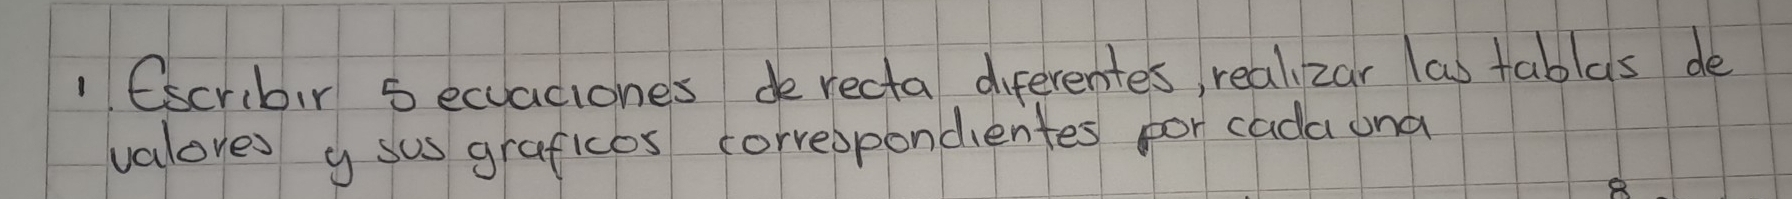 1. Escribir 5 ecuaciones de recta diferentes, realizar las tablas de
valores y sus graficos correspondientes por cada una
8